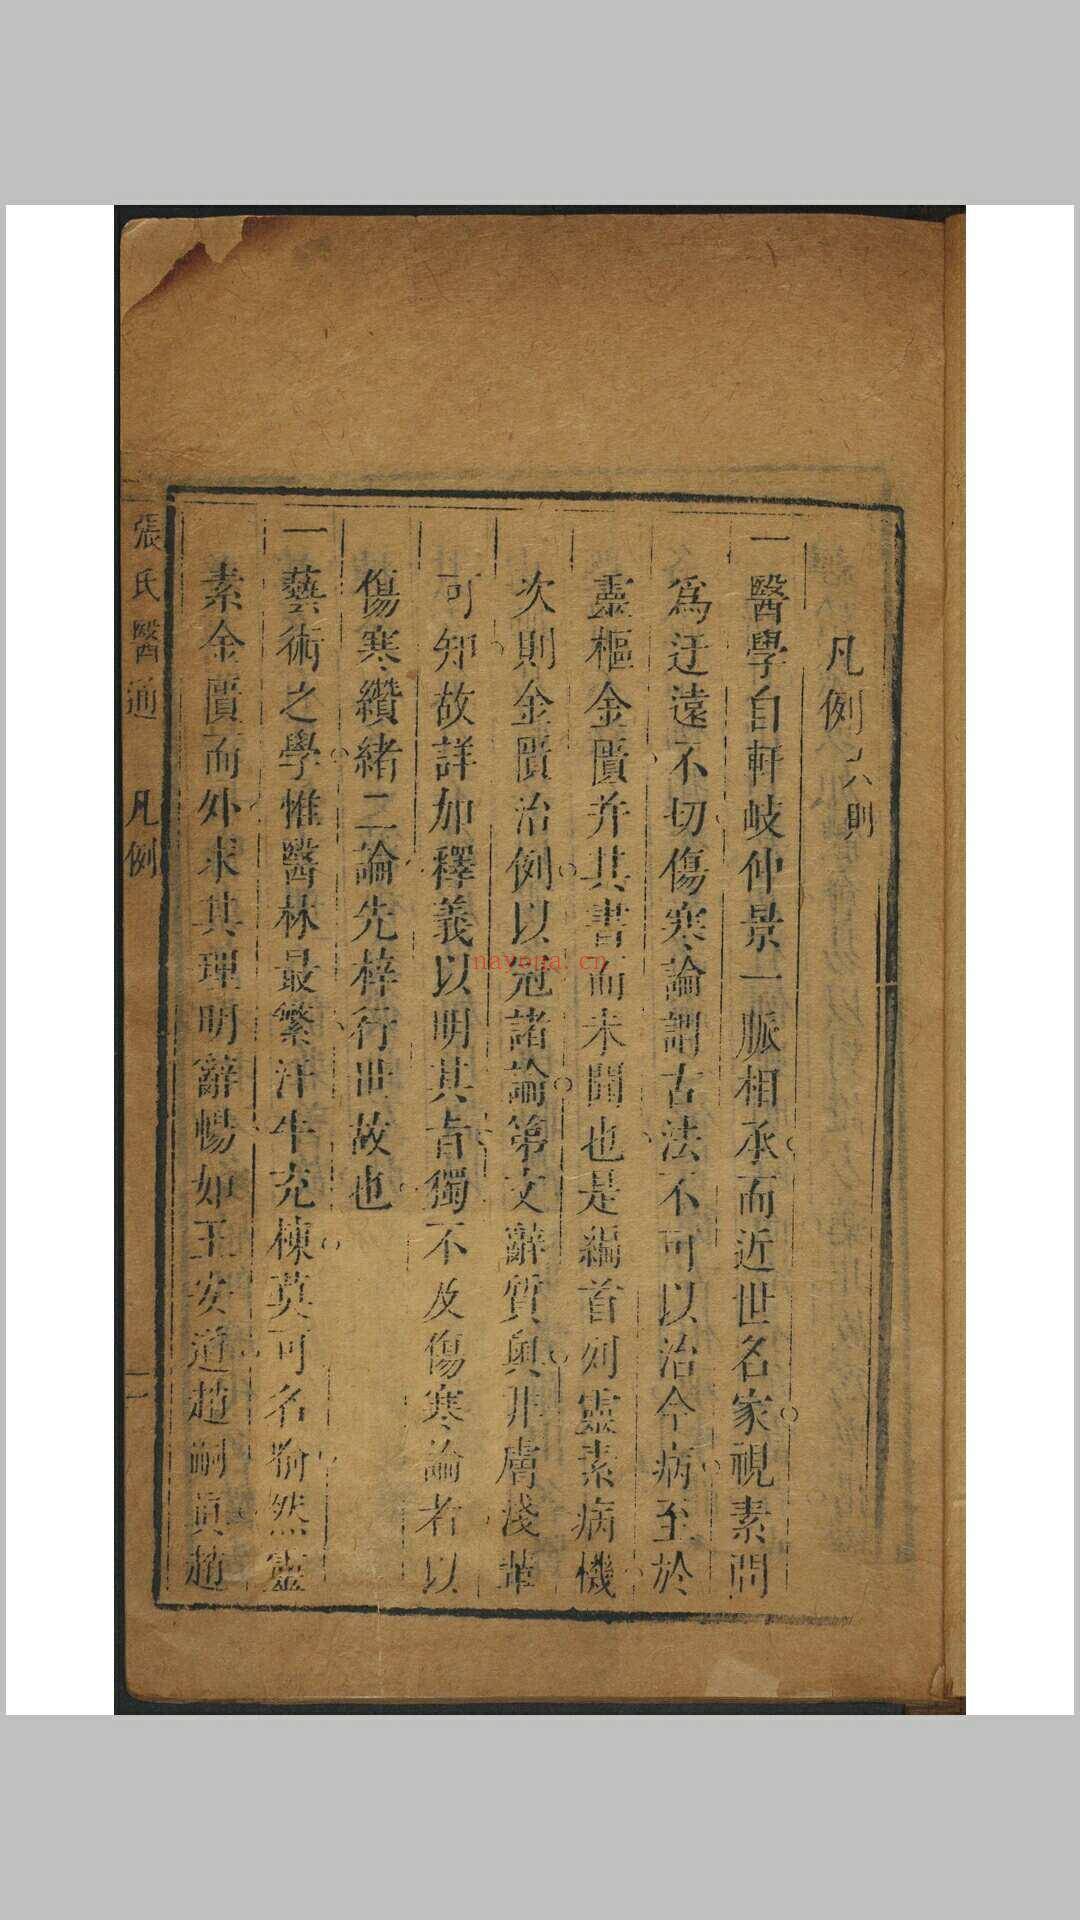 凡例八則
一醫學自軒岐仲景一脈相承而近世名家視素問
爲迂遠不切傷寒論謂古法不可以治今病至於
靈樞金匱并其書而未聞也是編首列靈素病機
次則金匱治例以冠諸論第文辭質奧非膚淺輩
可知故詳加釋義以明其旨獨不及傷寒論者以
傷寒纘緒二論先梓行世故也
一藝術之學惟醫林最繁汗牛充棟莫可名喻然靈
素金匱而外求其理明辭暢如王安道趙嗣真趙
張氏醫通 凡例 一
nayona.cn